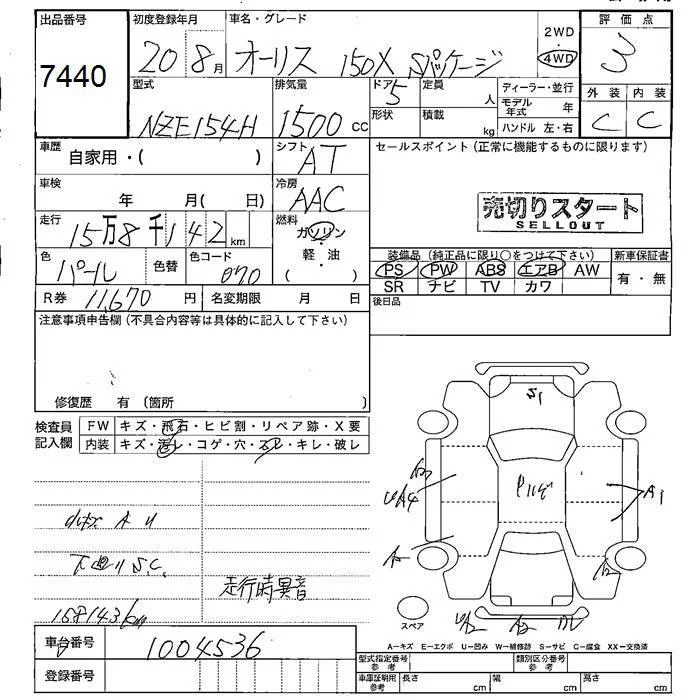 出品番号
7440
初度登録年月
20 8月
車名・グレード
オーリス 150X Sパッケージ
2WD
4WD
評価点
3
型式
NZE154H
排気量
1500 CC
ドア
5
形状
定員
人
積載
kg
ディーラー・並行
モデル年式 年
ハンドル 左・右
外装
C
内装
C
車歴
自家用・( )
シフト
AT
セールスポイント(正常に機能するものに限ります)
売切りスタート
SELLOUT
車検
年 月( 日)
冷房
AAC
走行
15万8千142km
燃料
ガソリン
・
軽・油
( )
色
パール
色替
色コード
070
装備品(純正品に限り○をつけて下さい)
PS PW ABS エアB AW
SR ナビ TV カワ
新車保証書
有・無
R券 11,670 円
名変期限 月 日
後日品
注意事項申告欄(不具合内容等は具体的に記入して下さい)
修復歴 有(箇所 )
検査員
記入欄
FW キズ・飛石・ヒビ割・リペア跡・X要
内装 キズ・汚レ・コゲ・穴・スレ・キレ・破レ
A U
下廻り S.C.
走行時異音
158143km
S1
A1
A2
スペア
A=キズ E=エクボ U=凹み W=補修跡 S=サビ C=腐食 XX=交換済
車台番号
1004536
登録番号
型式指定番号
参考
類別区分番号
参考
車庫証明用
参考
長さ cm
幅 cm
高さ cm